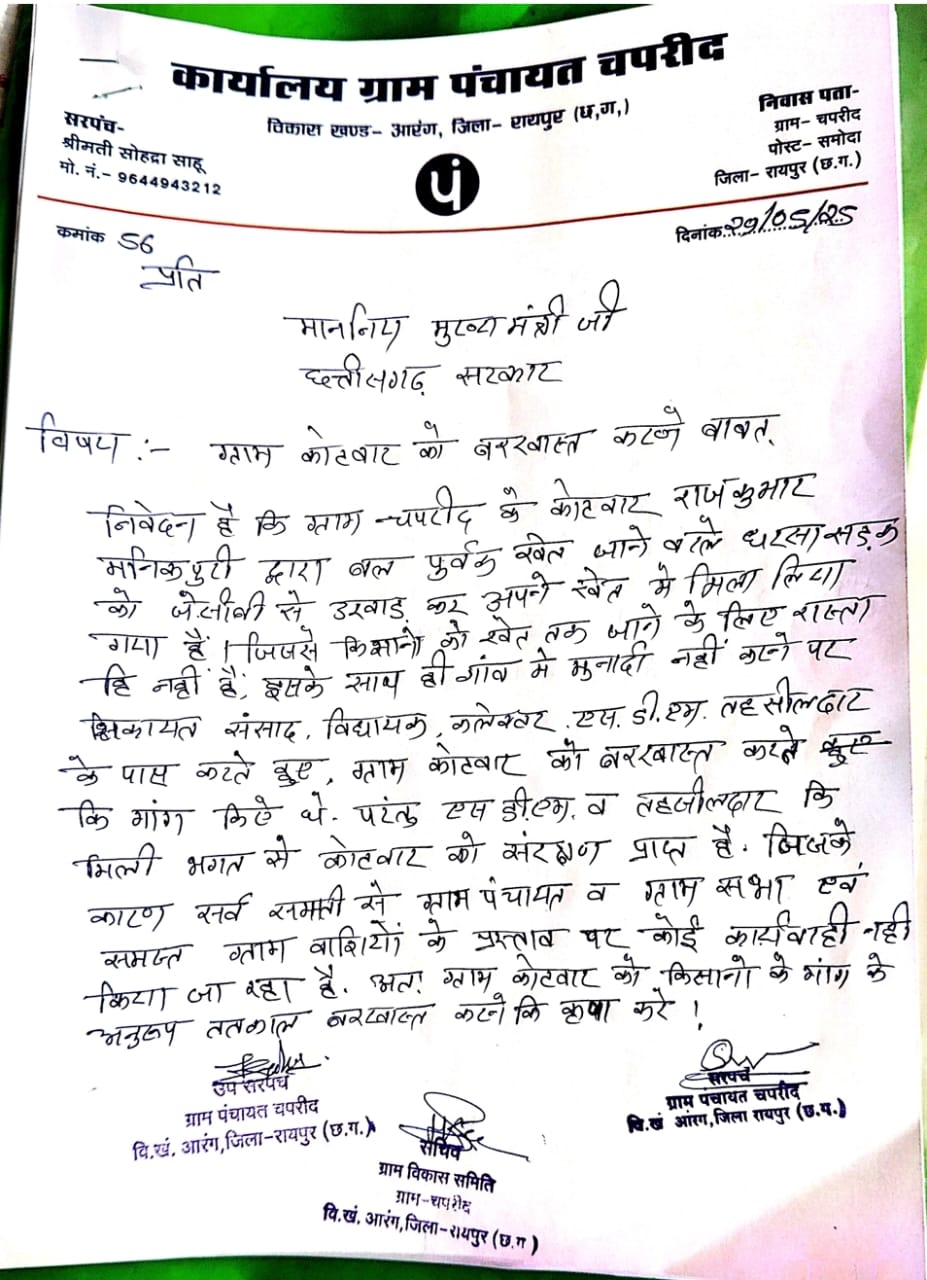 कार्यालय ग्राम पंचायत चपरीद
विकास खण्ड- आरंग, जिला- रायपुर (छ,ग,)
सरपंच-
श्रीमती सोहद्रा साहू
मो. नं.- 9644943212
निवास पता-
ग्राम- चपरीद
पोस्ट- समोदा
जिला- रायपुर (छ.ग.)
पं
कमांक 56
दिनांक 29/05/25
प्रति
माननिय मुख्य मंत्री जी
छत्तीसगढ़ सरकार
विषय :- ग्राम कोटवार को बरखास्त करने बाबत.
निवेदन है कि ग्राम चपरीद के कोटवार राजकुमार
मनिकपुरी द्वारा बल पुर्वक खेत जाने वाले धरसा सड़क
को जेसीबी से उखाड़ कर अपने खेत मे मिला लिया
गया हैं। जिससे किसानो को खेत तक जाने के लिए रास्ता
हि नहीं है, इसके साथ ही गांव मे मुनादी नहीं करने पर
शिकायत संसाद, विधायक, कलेक्टर, एस.डी.एम. तहसीलदार
के पास करते हुए, ग्राम कोटवार को बरखास्त करने
कि मांग किए थे. परंतु एस डी.एम. व तहसीलदार कि
मिली भगत से कोटवार को संरक्षण प्राप्त है. जिसके
कारण सर्व सम्मती से ग्राम पंचायत व ग्राम सभा एवं
समस्त ग्राम वाशियों के प्रस्ताव पर कोई कार्यवाही नही
किया जा रहा है. अतः ग्राम कोटवार को किसानो के मांग के
अनुरूप ततकाल बरखास्त करने कि कृपा करे !
उप सरपंच
ग्राम पंचायत चपरीद
वि.खं. आरंग,जिला-रायपुर (छ.ग.)
सचिव
ग्राम विकास समिति
ग्राम-चपरीद
वि.खं. आरंग,जिला-रायपुर (छ.ग)
सरपंच
ग्राम पंचायत चपरीद
वि.खं आरंग,जिला रायपुर (छ.ग.)